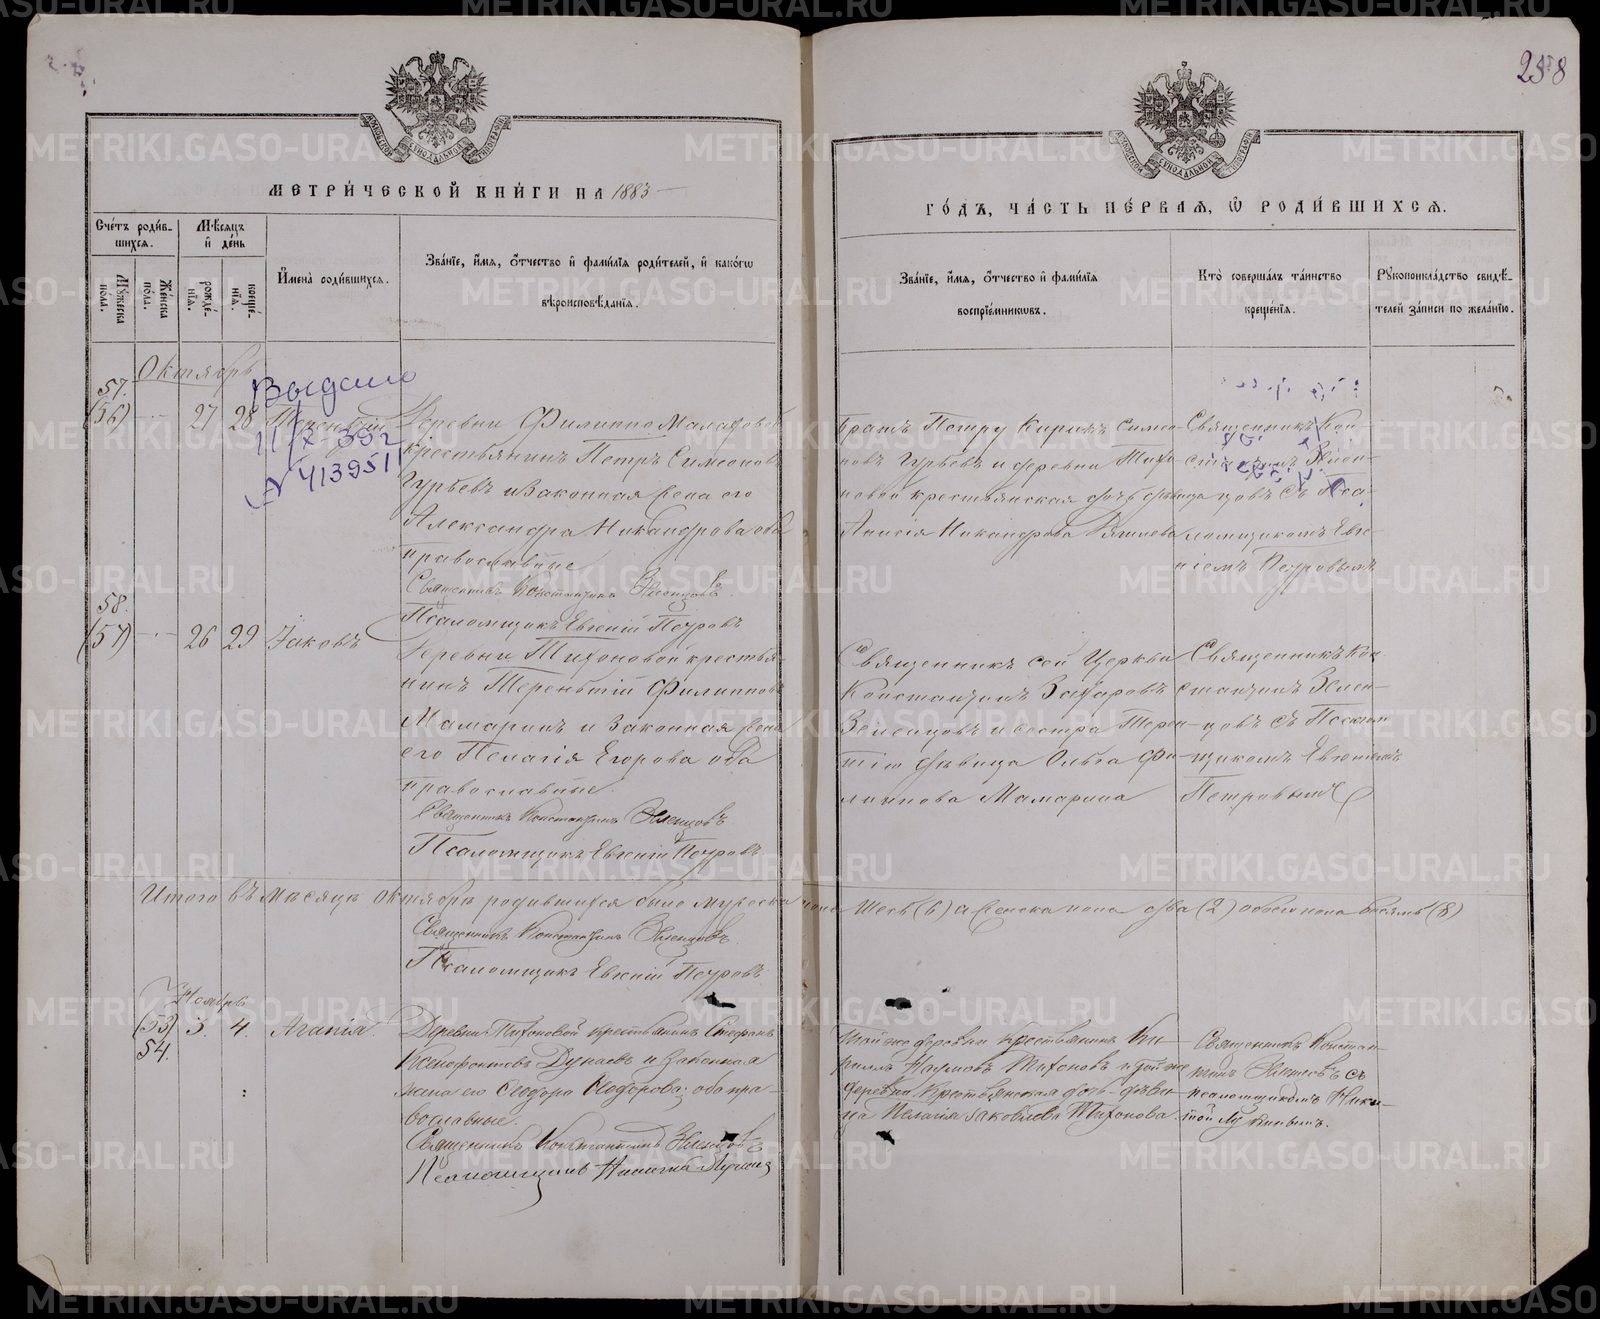 258
МЕТРИ́ЧЕСКОЙ КНИ́ГИ НА 1883
ГО́ДЪ, ЧА́СТЬ ПЕ́РВАЯ, Ѽ РОДИ́ВШИХСѦ.
Сче́тъ роди́в-
шихсѧ.
Мꙋ́жеска
по́ла.
Же́нска
по́ла.
Мѣ́сѧцъ
и҆ де́нь
рожде́-
нїѧ.
креще́-
нїѧ.
И҆мена̀ роди́вшихсѧ.
Зва́нїе, и҆́мѧ, ѻ҆́тчество и҆ фами́лїѧ роди́телей, и҆ како́гѡ
вѣроисповѣ́данїѧ.
Зва́нїе, и҆́мѧ, ѻ҆́тчество и҆ фами́лїѧ
воспрїе́мникѡвъ.
Кто̀ соверша́лъ та́инство
креще́нїѧ.
Рꙋкоприкла́дство свидѣ́-
телей за́писи по жела́нїю.
Октябрь
Выдано
11/X-39г
№ 413951
57.
(56) 27 28 Терентій
Деревни Филиппо Малафовой
крестьянинъ Петръ Симеоновъ
Гурьевъ и законная жена его
Александра Никандрова оба
православные
Священникъ Константинъ Зеленцовъ
Псаломщикъ Евгеній Петровъ
Братъ Петру Кириллъ Симео-
новъ Гурьевъ и деревни Тихо-
новой крестьянская дочь девица
Анисія Никандрова
Священникъ Кон-
стантинъ Зелен-
цовъ съ Пса-
ломщикомъ Евге-
ніемъ Петровымъ
58.
(57) 26 29 Іаковъ
Деревни Тихоновой крестья-
нинъ Терентій Филипповъ
Мамаринъ и законная жена
его Пелагія Егорова оба
православные.
Священникъ Константинъ Зеленцовъ
Псаломщикъ Евгеній Петровъ
Священникъ сей Церкви
Константинъ Захаровъ
Зеленцовъ и сестра Терен-
тію девица Ольга Фи-
липпова Мамарина
Священникъ Кон-
стантинъ Зелен-
цовъ съ Псалом
щикомъ Евгеніемъ
Петровымъ
Итого въ месяце октябре родившихся было мужеска пола Шесть (6) а женска пола два (2) обоего пола восемь (8)
Священникъ Константинъ Зеленцовъ
Псаломщикъ Евгеній Петровъ
Ноябрь
(53) 3. 4. Агапія.
54.
Деревни Тихоновой крестьянинъ Стефанъ
Ксенофонтовъ Дунаевъ и законная
жена его Феодора Феодорова; оба пра-
вославные.
Священникъ Константинъ Зеленцовъ
Псаломщикъ Никита
Той же деревни крестьянинъ Ки-
риллъ Наумовъ Тихоновъ и той же
деревни крестьянская дочь - деви-
ца Пелагія Іаковлева Тихонова
Священникъ Констан-
тинъ Зеленцовъ съ
псаломщикомъ Ники-
той